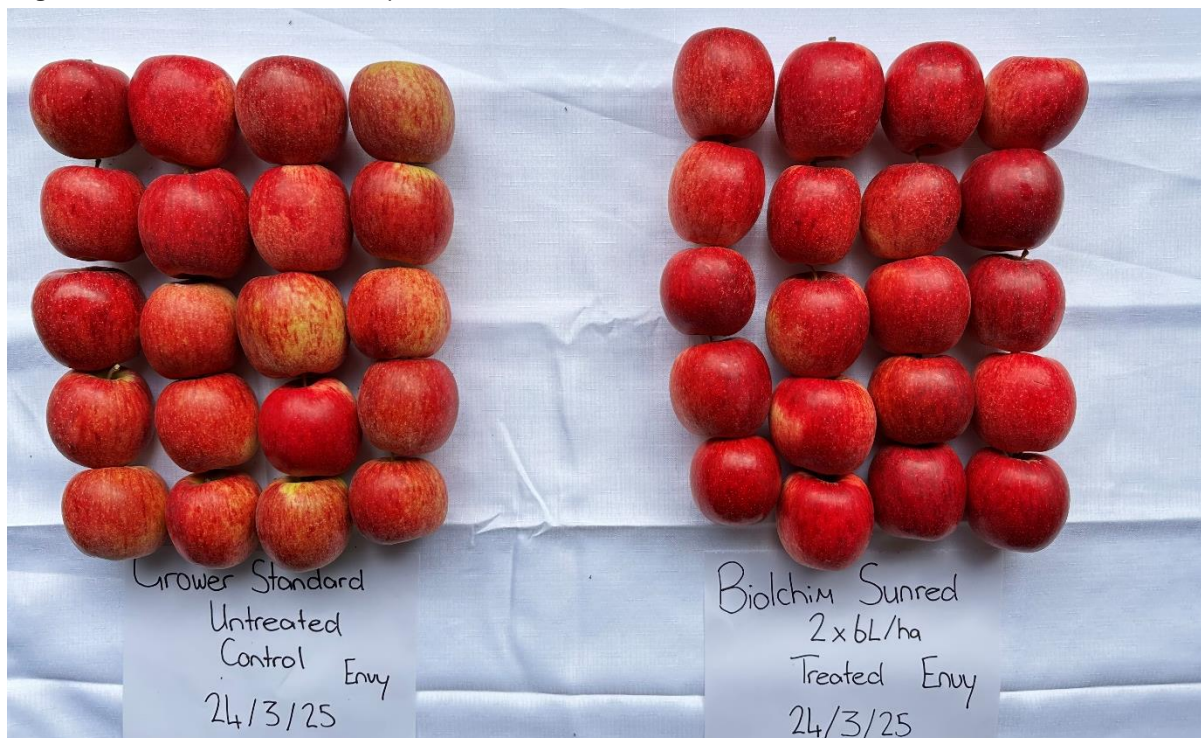 Grower Standard
Untreated
Control Envy
24/3/25
Biolchim Sunred
2 x 6L/ha
Treated Envy
24/3/25